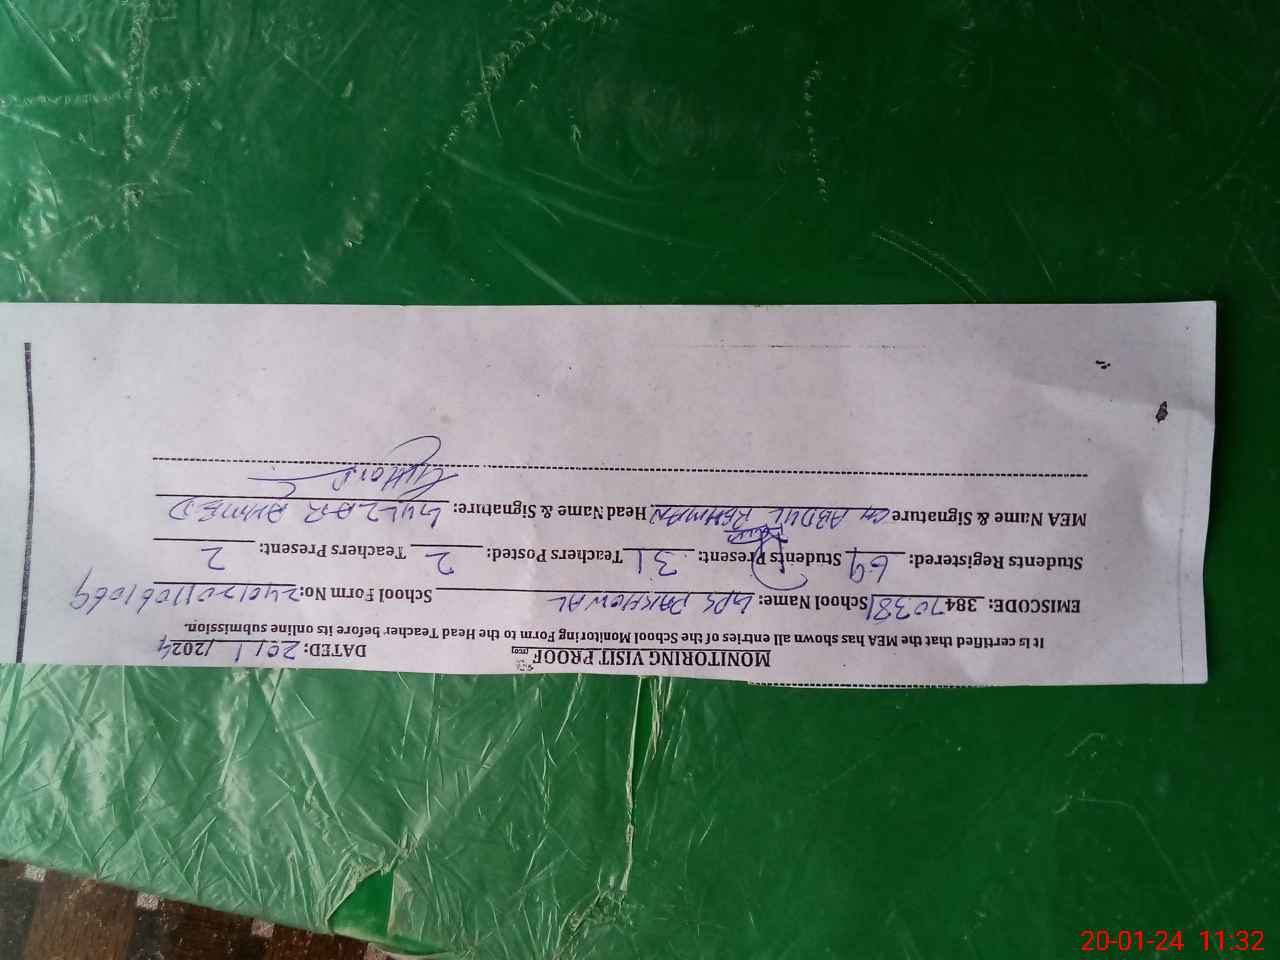 MONITORING VISIT PROOF DATED: 20/1/2024
It is certified that the MEA has shown all entries of the School Monitoring Form to the Head Teacher before its online submission.
EMISCODE: 38470381 School Name: GPS PAKHOWAL School Form No: 240120110611069
Students Registered: 69 Students Present: 31 Teachers Posted: 2 Teachers Present: 2
MEA Name & Signature CH ABDUL REHMAN Head Name & Signature: GULZAR AHMED
20-01-24 11:32